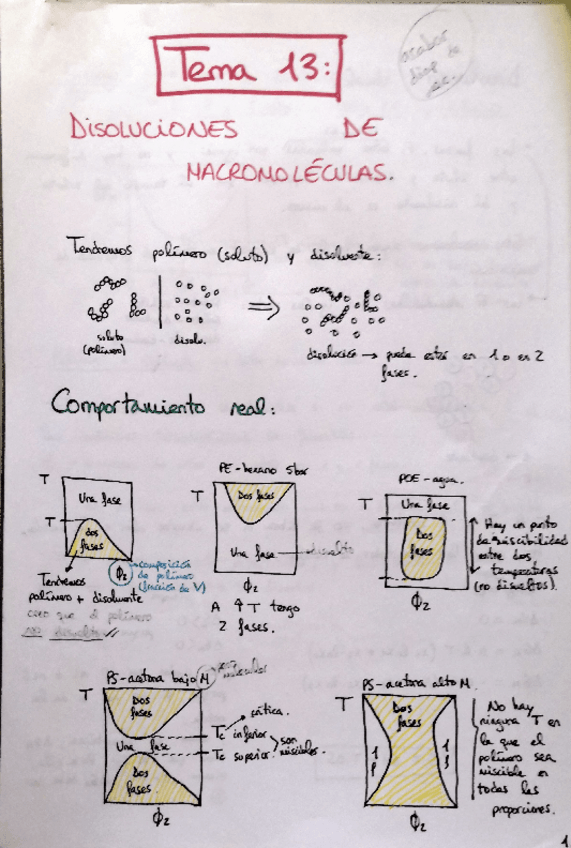 Tema 13:
acabar
DISOLUCIONES DE
MACROMOLÉCULAS.
Tendremos polímero (soluto) y disolvente:
soluto
(polímero)
disolv.
disolución → puede estar en 1 o en 2
fases.
Comportamiento real:
T
Una fase
T
dos
fases
ϕ2
composición
de polímero
(fracción de V)
Tendremos
polímero + disolvente
creo que el polímero
no disuelto
PE-hexano 5bar
T
Dos fases
Una fase
disuelto
ϕ2
A ↑ T tengo
2 fases.
POE-agua.
T
Una fase
Dos
fases
ϕ2
Hay un punto
de miscibilidad
entre dos
temperaturas
(no disueltos).
PS-acetona bajo M
peso
molecular
T
Dos
fases
Una fase
Dos
fases
ϕ2
crítica.
Tc inferior
Tc superior
son
miscibles.
PS-acetona alto M.
T
Dos
fases
1 f
1 f
ϕ2
No hay
ninguna T en
la que el
polímero sea
miscible en
todas las
proporciones.
1